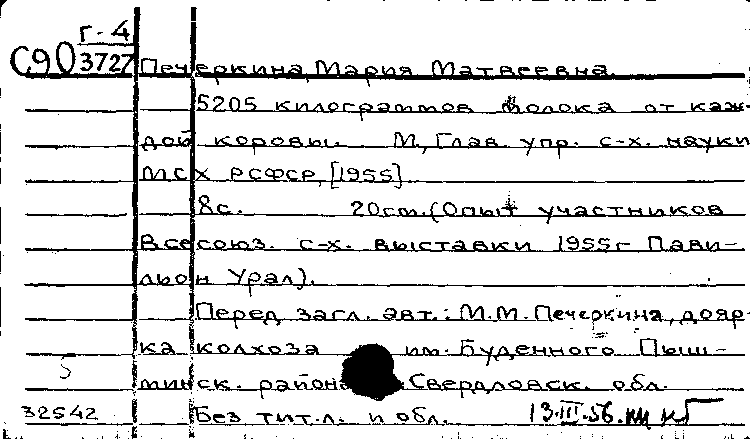 Г-4
С90 3727 Печеркина, Мария Матвеевна.
5205 килограммов молока от каж-
дой коровы. М, Глав. упр. с-х. науки
МСХ РСФСР, [1955].
8с. 20см. (Опыт участников
Всесоюз. с-х. выставки 1955г Пави-
льон Урал).
Перед загл. авт.: М.М. Печеркина, дояр-
ка колхоза им. Буденного Пыш-
5
минск. района Свердловск. обл.
32542 Без тит.л. и обл. 13.III.56.